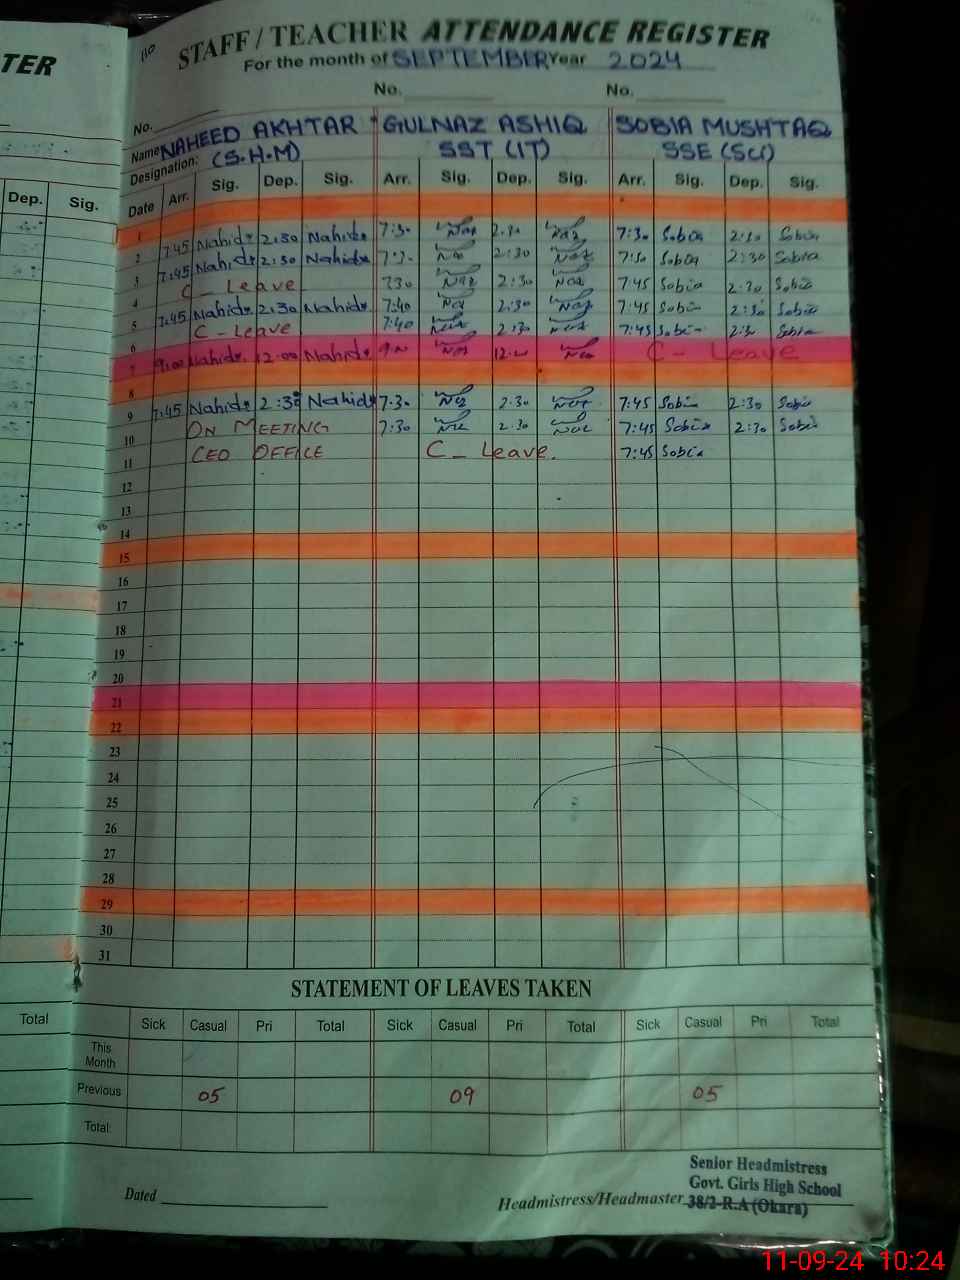 TER
110
STAFF / TEACHER ATTENDANCE REGISTER
For the month of SEPTEMBER Year 2024
No. No. No.
Name NAHEED AKHTAR GULNAZ ASHIQ SOBIA MUSHTAQ
Designation: (S.H.M) SST (IT) SSE (SCI)
Dep. Sig. Date Arr. Sig. Dep. Sig. Arr. Sig. Dep. Sig. Arr. Sig. Dep. Sig.
1
2 7:45 Nahids 2:30 Nahids 7:30 2:30 7:30 Sobia 2:30 Sobia
3 7:45 Nahids 2:30 Nahids 2:30 7:30 Sobia 2:30 Sobia
4 C - Leave 7:30 2:30 7:45 Sobia 2:30 Sobia
5 7:45 Nahids 2:30 Nahids 7:40 2:30 7:45 Sobia 2:30 Sobia
6 C - Leave 7:40 2:30 7:45 Sobia 2:30 Sobia
7 9:00 Nahids 12:00 Nahids C - Leave
8
9 7:45 Nahids 2:30 Nahids 7:30 2:30 7:45 Sobia 2:30 Sobia
10 ON MEETING 7:30 2:30 7:45 Sobia 2:30 Sobia
11 CEO OFFICE C - Leave. 7:45 Sobia
12
13
14
15
16
17
18
19
20
21
22
23
24
25
26
27
28
29
30
31
STATEMENT OF LEAVES TAKEN
Total Sick Casual Pri Total Sick Casual Pri Total Sick Casual Pri Total
This Month
Previous 05 09 05
Total
Dated
Headmistress/Headmaster
Senior Headmistress
Govt. Girls High School
38/2-R.A (Okara)
11-09-24 10:24